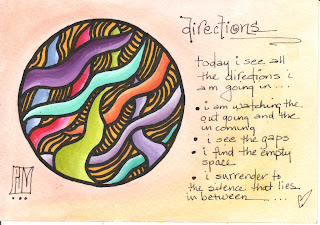 directions
today i see all
the directions i
am going in...
• i am watching the
out going and the
in coming
• i see the gaps
• i find the empty
space
• i surrender to
the silence that lies
in between ....